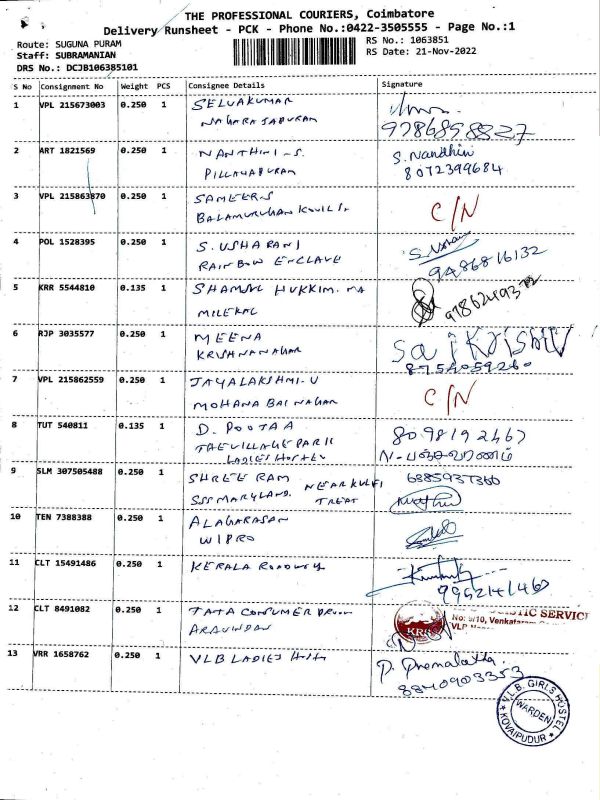 THE PROFESSIONAL COURIERS, Coimbatore
Delivery Runsheet - PCK - Phone No.:0422-3505555 - Page No.:1
Route: SUGUNA PURAM
RS No.: 1063851
Staff: SUBRAMANIAN
RS Date: 21-Nov-2022
DRS No.: DCJB106385101
S No Consignment No Weight PCS Consignee Details Signature
1 VPL 215673003 0.250 1 SELVAKUMAR
NAGARAJAPURAM
9786898827
2 ART 1821569 0.250 1 NANTHINI-S. S. Nandhini
PILLAYAPURAM 8072399684
3 VPL 215863870 0.250 1 SAMEERS C/N
BALAMURUGAN KOVIL St
4 POL 1528395 0.250 1 S. USHARANI S. Usha
RAINBOW ENCLAVE 9486816132
5 KRR 5544810 0.135 1 SHAMBU HUKKIM. MA
MILEKAL
6 RJP 3035577 0.250 1 MEENA
KRISHNANAGAR
7 VPL 215862559 0.250 1 JAYALAKSHMI-U C/N
MOHANA BAI NAGAR
8 TUT 540811 0.135 1 D. POOJAA 8098192467
THE VILLAGE PARK N-பஞ்சவர்ணம்
LADIES HOSTEL
9 SLM 307505488 0.250 1 SHREE RAM NEAR KULFI 6385937360
SSS MARYLAND. TREAT
10 TEN 7388388 0.250 1 ALAGARASAN
WIPRO
11 CLT 15491486 0.250 1 KERALA ROADWAYS
9952141460
12 CLT 8491082 0.250 1 TATA CONSUMER PRODU
ARAVINDAN
KRS
ISTIC SERVIC
No: 9/10, Venkatara
VLP
13 VRR 1658762 0.250 1 VLB LADIES Hostel P. Premalatha
8840903353
V.L.B. GIRLS HOSTEL
WARDEN
KOVAIPUDUR